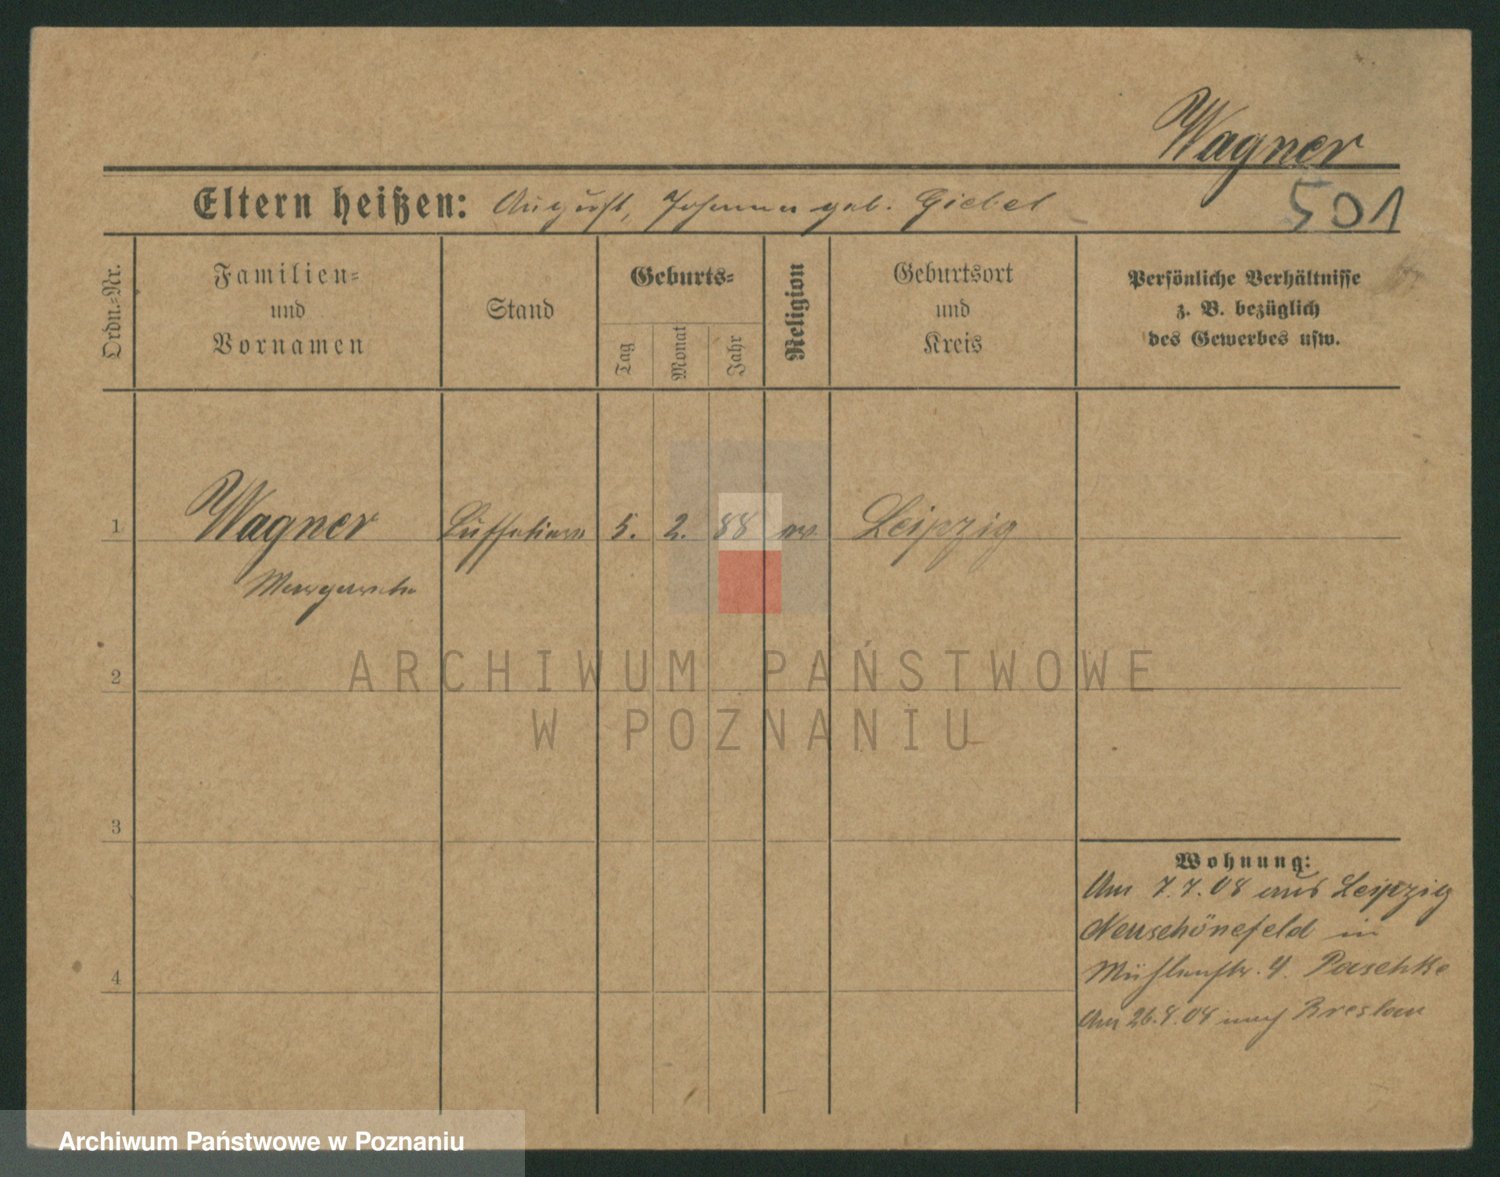 Wagner
501
Eltern heißen: August, Johanna geb. Giebel
Ordn.-Nr.
Familien-
und
Vornamen
Stand
Geburts-
Tag
Monat
Jahr
Religion
Geburtsort
und
Kreis
Persönliche Verhältnisse
z. B. bezüglich
des Gewerbes usw.
1 Wagner 5. 2. 88 ev. Leipzig
Margarete
2
3
4
Wohnung:
Am 7.7.08 aus Leipzig
Neuschönefeld in
Mühlenstr. 4. Paschke
Am 26.8.08 nach Breslau
ARCHIWUM PAŃSTWOWE
W POZNANIU
Archiwum Państwowe w Poznaniu